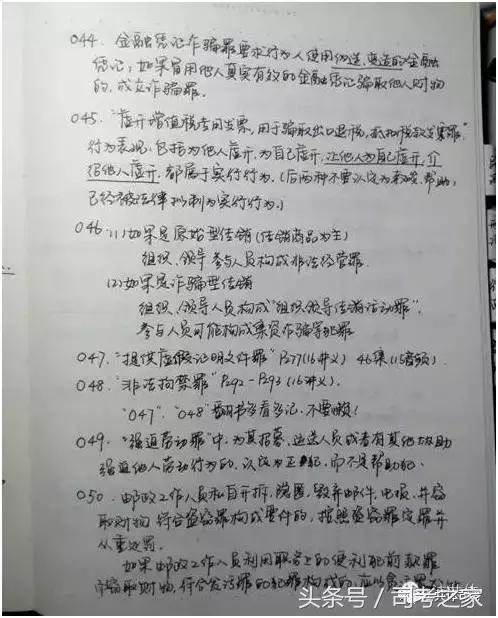 044. 金融凭证诈骗罪要求行为人使用伪造、变造的金融
凭证，如果冒用他人真实有效的金融凭证骗取他人财物
的，成立诈骗罪。
045. "虚开增值税专用发票，用于骗取出口退税、抵扣税款发票罪"
行为表现：包括为他人虚开、为自己虚开、让他人为自己虚开、介
绍他人虚开，都属于实行行为。(后两种不要认定为教唆、帮助，
已经被法律拟制为实行行为。)
046. (1) 如果是原始型传销 (传销商品为主)
组织、领导、参与人员构成非法经营罪。
(2) 如果是诈骗型传销
组织、领导人员构成"组织、领导传销活动罪"，
参与人员可能构成集资诈骗等犯罪
047. "提供虚假证明文件罪" P277(16讲义) 46集(15音频)
048. "非法拘禁罪" P292-P293 (16讲义).
"047"、"048"翻书学着多记，不要懒！
049. "强迫劳动罪"中，为其招募、运送人员或者有其他协助
强迫他人劳动行为的，认定为正犯，而不是帮助犯.
050. 邮政工作人员私自开拆、隐匿、毁弃邮件、电报，并窃
取财物 符合盗窃罪构成要件的，按照盗窃罪定罪并
从重处罚.
如果邮政工作人员利用职务上的便利犯前款罪
而窃取财物，符合贪污罪的犯罪构成的，应以贪污罪
头条号 / 司考之家